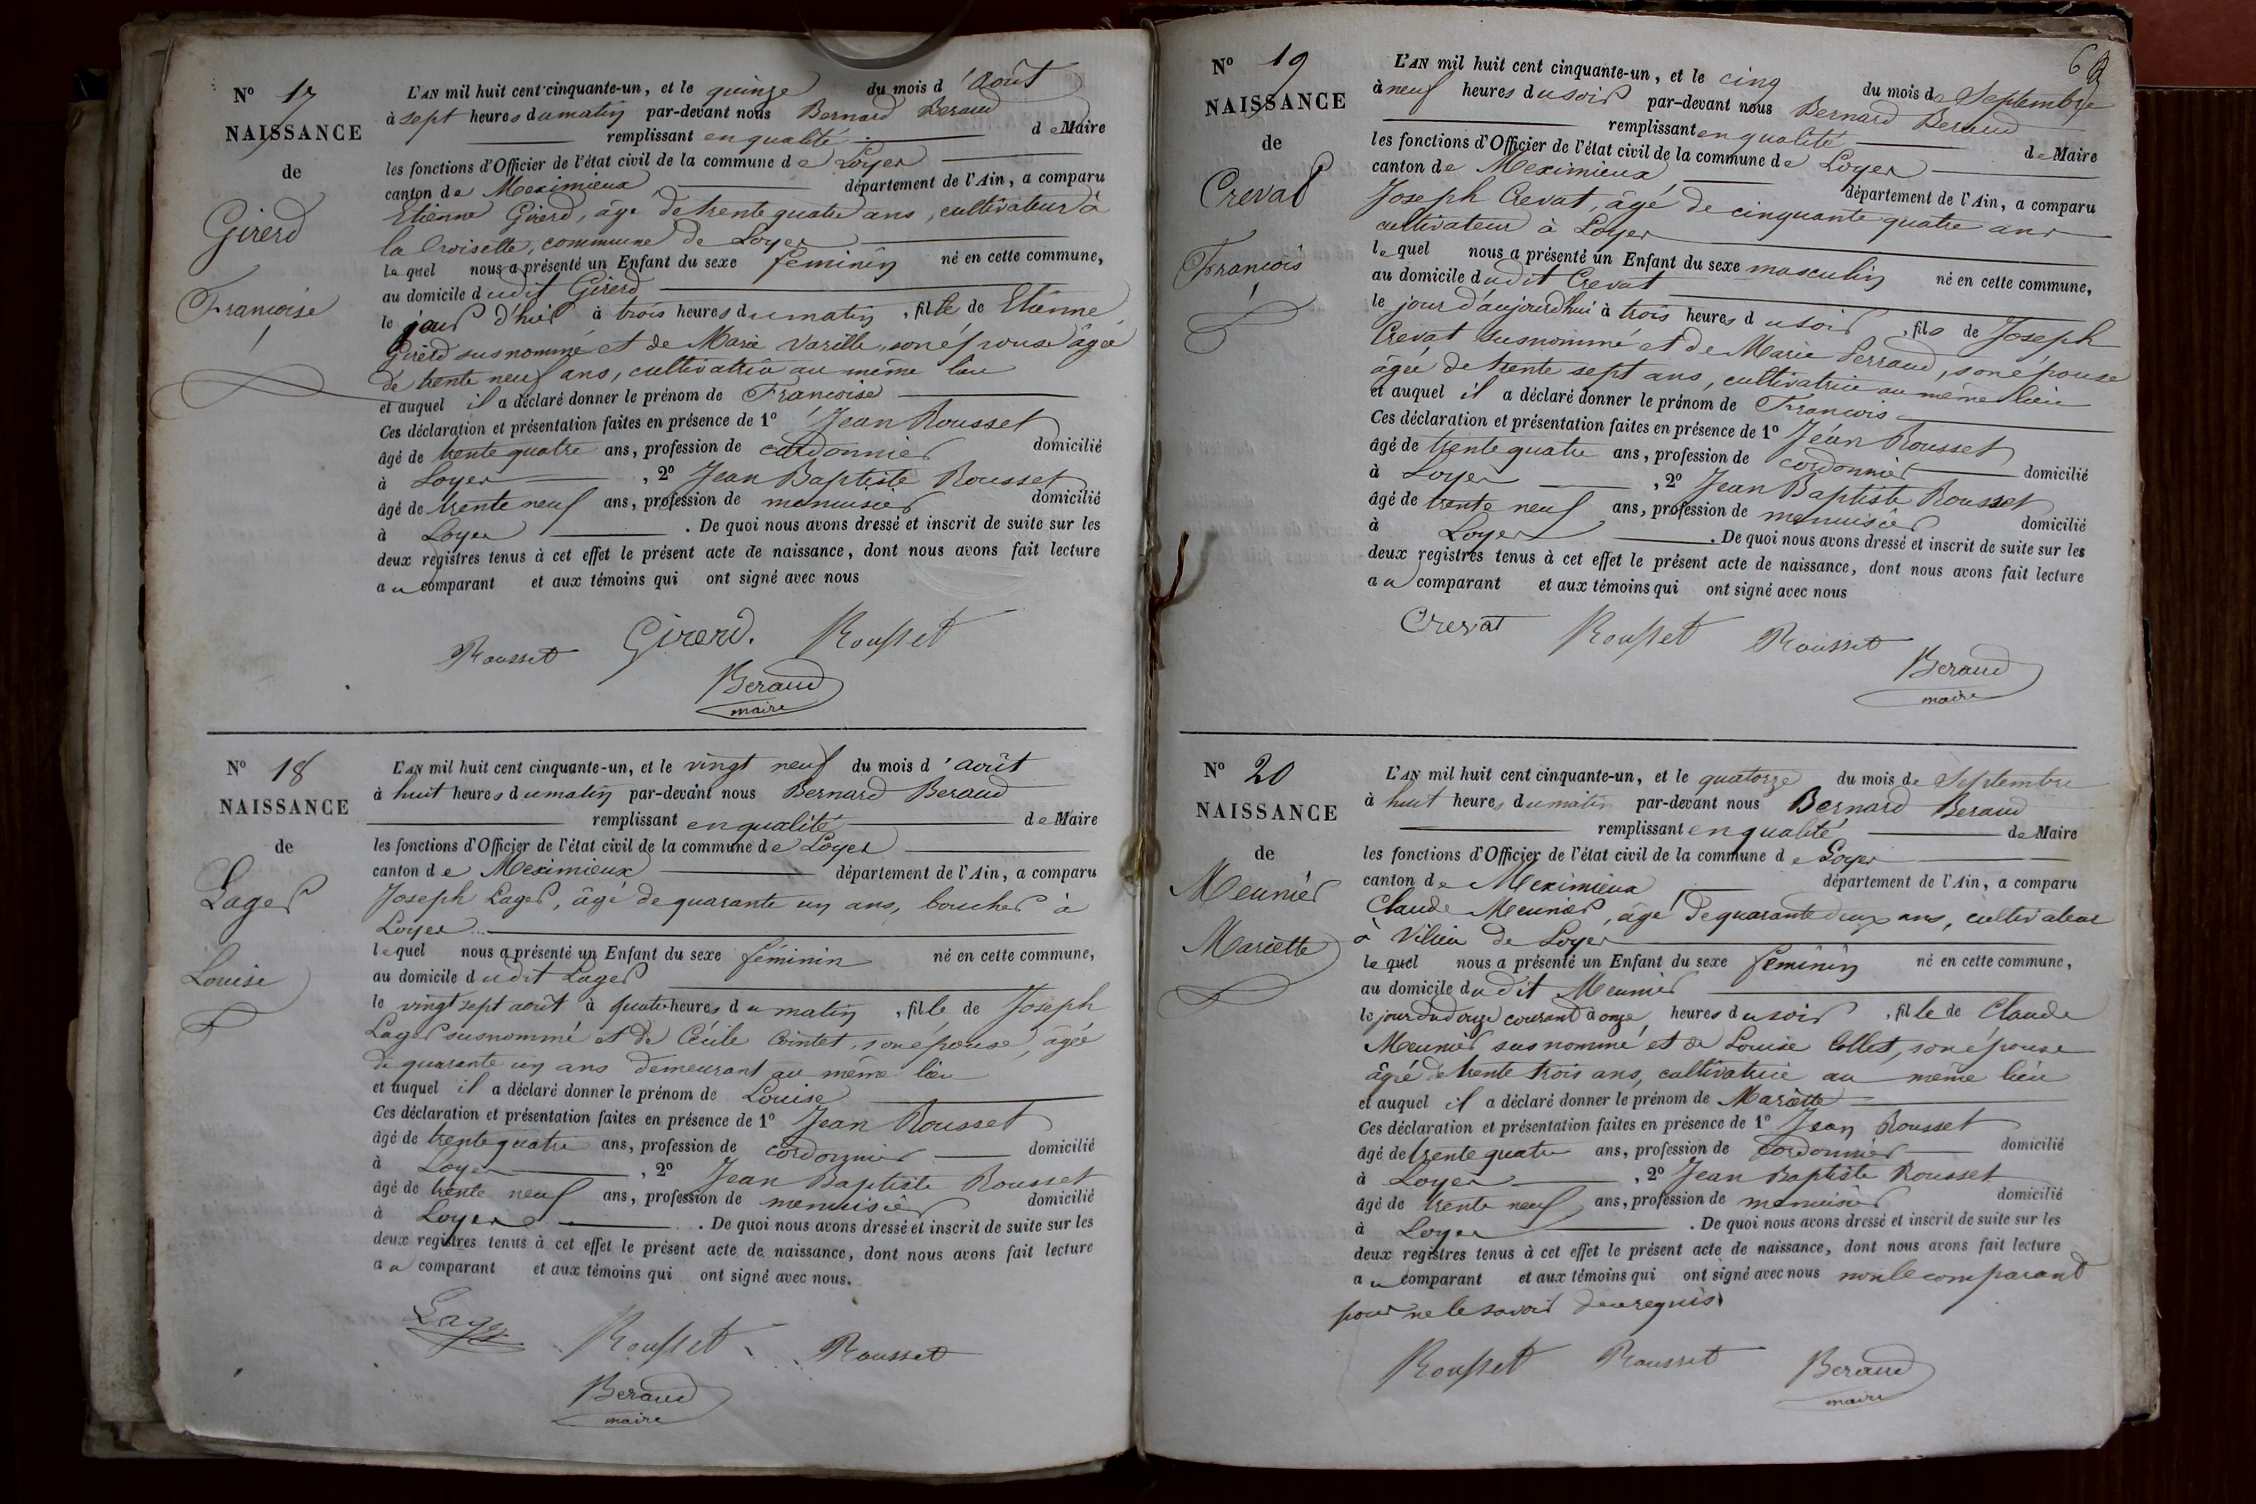 N° 17
NAISSANCE
de
Girerd
Françoise
L'AN mil huit cent cinquante-un, et le quinze du mois d'Août
à sept heures du matin par-devant nous Bernard Beraud
remplissant en qualité de Maire
les fonctions d'Officier de l'état civil de la commune de Loyes
canton de Meximieux département de l'Ain, a comparu
Etienne Girerd, âgé de trente quatre ans, cultivateur à
la Croisette, commune de Loyes
lequel nous a présenté un Enfant du sexe féminin né en cette commune,
au domicile dudit Girerd
le jour d'hier à trois heures du matin, fille de Etienne
Girerd susnommé et de Marie Varille, son épouse âgée
de trente neuf ans, cultivatrice au même lieu
et auquel il a déclaré donner le prénom de Françoise
Ces déclaration et présentation faites en présence de 1° Jean Rousset
âgé de trente quatre ans, profession de cordonnier domicilié
à Loyes, 2° Jean Baptiste Rousset
âgé de trente neuf ans, profession de menuisier domicilié
à Loyes. De quoi nous avons dressé et inscrit de suite sur les
deux registres tenus à cet effet le présent acte de naissance, dont nous avons fait lecture
au comparant et aux témoins qui ont signé avec nous
Rousset Girerd. Rousset
Beraud
maire
N° 18
NAISSANCE
de
Lager
Louise
L'AN mil huit cent cinquante-un, et le vingt neuf du mois d'août
à huit heures du matin par-devant nous Bernard Beraud
remplissant en qualité de Maire
les fonctions d'Officier de l'état civil de la commune de Loyes
canton de Meximieux département de l'Ain, a comparu
Joseph Lager, âgé de quarante un ans, boucher à
Loyes
lequel nous a présenté un Enfant du sexe féminin né en cette commune,
au domicile dudit Lager
le vingt sept août à quatre heures du matin, fille de Joseph
Lager susnommé et de Cécile Cointet, son épouse, âgée
de quarante un ans demeurant au même lieu
et auquel il a déclaré donner le prénom de Louise
Ces déclaration et présentation faites en présence de 1° Jean Rousset
âgé de trente quatre ans, profession de cordonnier domicilié
à Loyes, 2° Jean Baptiste Rousset
âgé de trente neuf ans, profession de menuisier domicilié
à Loyes. De quoi nous avons dressé et inscrit de suite sur les
deux registres tenus à cet effet le présent acte de naissance, dont nous avons fait lecture
au comparant et aux témoins qui ont signé avec nous.
Lager Rousset Rousset
Beraud
maire
N° 19
NAISSANCE
de
Crevat
François
L'AN mil huit cent cinquante-un, et le cinq du mois de Septembre
à neuf heures du soir par-devant nous Bernard Beraud
remplissant en qualité de Maire
les fonctions d'Officier de l'état civil de la commune de Loyes
canton de Meximieux département de l'Ain, a comparu
Joseph Crevat, âgé de cinquante quatre ans
cultivateur à Loyes
lequel nous a présenté un Enfant du sexe masculin né en cette commune,
au domicile dudit Crevat
le jour d'aujourd'hui à trois heures du soir, fils de Joseph
Crevat susnommé et de Marie Perraud, son épouse
âgée de trente sept ans, cultivatrice au même lieu
et auquel il a déclaré donner le prénom de François
Ces déclaration et présentation faites en présence de 1° Jean Rousset
âgé de trente quatre ans, profession de cordonnier domicilié
à Loyes, 2° Jean Baptiste Rousset
âgé de trente neuf ans, profession de menuisier domicilié
à Loyes. De quoi nous avons dressé et inscrit de suite sur les
deux registres tenus à cet effet le présent acte de naissance, dont nous avons fait lecture
au comparant et aux témoins qui ont signé avec nous
Crevat Rousset Rousset
Beraud
maire
N° 20
NAISSANCE
de
Meunier
Mariette
L'AN mil huit cent cinquante-un, et le quatorze du mois de Septembre
à huit heures du matin par-devant nous Bernard Beraud
remplissant en qualité de Maire
les fonctions d'Officier de l'état civil de la commune de Loyes
canton de Meximieux département de l'Ain, a comparu
Claude Meunier, âgé de quarante deux ans, cultivateur
à Vilieu de Loyes
lequel nous a présenté un Enfant du sexe féminin né en cette commune,
au domicile dudit Meunier
le jour du douze courant à onze heures du soir, fille de Claude
Meunier susnommé et de Louise Collet, son épouse
âgée de trente trois ans, cultivatrice au même lieu
et auquel il a déclaré donner le prénom de Mariette
Ces déclaration et présentation faites en présence de 1° Jean Rousset
âgé de trente quatre ans, profession de cordonnier domicilié
à Loyes, 2° Jean Baptiste Rousset
âgé de trente neuf ans, profession de menuisier domicilié
à Loyes. De quoi nous avons dressé et inscrit de suite sur les
deux registres tenus à cet effet le présent acte de naissance, dont nous avons fait lecture
au comparant et aux témoins qui ont signé avec nous non le comparant
pour ne le savoir de ce requis
Rousset Rousset Beraud
maire